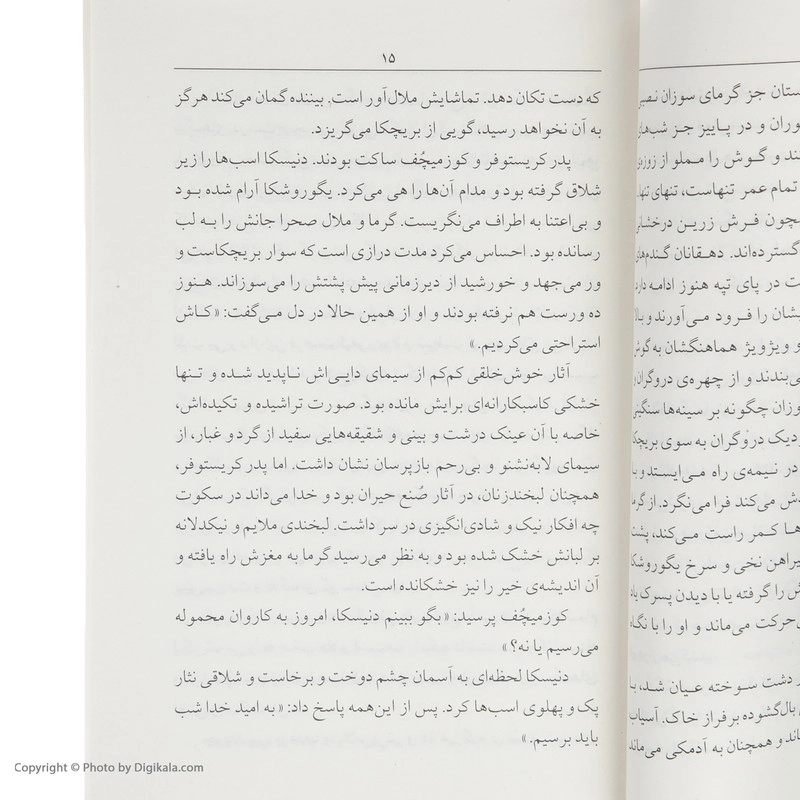 ۱۵
که دست تکان دهد. تماشایش ملال‌آور است. بیننده گمان می‌کند هرگز
به آن نخواهد رسید، گویی از بریچکا می‌گریزد.
پدر کریستوفر و کوزمیچُف ساکت بودند. دنیسکا اسب‌ها را زیر
شلاق گرفته بود و مدام آن‌ها را هی می‌کرد. یگوروشکا آرام شده بود
و بی‌اعتنا به اطراف می‌نگریست. گرما و ملال صحرا جانش را به لب
رسانده بود. احساس می‌کرد مدت درازی است که سوار بریچکاست و
ور می‌جهد و خورشید از دیرزمانی پیش پشتش را می‌سوزاند. هنوز
ده ورست هم نرفته بودند و او از همین حالا در دل می‌گفت: «کاش
استراحتی می‌کردیم.»
آثار خوش‌خلقی کم‌کم از سیمای دایی‌اش ناپدید شده و تنها
خشکی کاسبکارانه‌ای برایش مانده بود. صورت تراشیده و تکیده‌اش،
خاصه با آن عینک درشت و بینی و شقیقه‌هایی سفید از گرد و غبار، از
سیمای لابه‌نشنو و بی‌رحم بازپرسان نشان داشت. اما پدر کریستوفر،
همچنان لبخندزنان، در آثار صُنع حیران بود و خدا می‌داند در سکوت
چه افکار نیک و شادی‌انگیزی در سر داشت. لبخندی ملایم و نیکدلانه
بر لبانش خشک شده بود و به نظر می‌رسید گرما به مغزش راه یافته و
آن اندیشه‌ی خیر را نیز خشکانده است.
کوزمیچُف پرسید: «بگو ببینم دنیسکا، امروز به کاروان محموله
می‌رسیم یا نه؟»
دنیسکا لحظه‌ای به آسمان چشم دوخت و برخاست و شلاقی نثار
پک و پهلوی اسب‌ها کرد. پس از این‌همه پاسخ داد: «به امید خدا شب
باید برسیم.»
جز گرمای سوزان
و در پاییز جز
و گوش را مملو از
تمام عمر تنهاست، تنهای
فرش زرین
گسترده‌اند. دهقانان
در پای تپه هنوز ادامه
را فرود می‌آورند و
و ویژویژ هماهنگشان به گوش
و از چهره‌ی دروگران
چگونه بر سینه‌ها
دروگران به سوی
در نیمه‌ی راه می‌ایستد و
می‌کند فرا می‌نگرد. از
کمر راست می‌کند،
نخی و سرخ یگوروشکا
را گرفته یا با دیدن پسرک
حرکت می‌ماند و او را با
دشت سوخته عیان شد،
بال‌گشوده بر فراز خاک. آسیاب
و همچنان به آدمکی می‌ماند
Copyright © Photo by Digikala.com